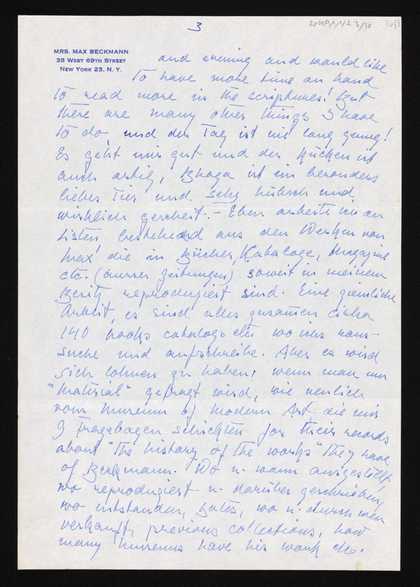 3
MRS. MAX BECKMANN
38 WEST 69TH STREET
NEW YORK 23, N. Y.
and evening and would like
to have more time on hand
to read more in the scriptures! But
there are many other things I have
to do und der Tag ist nie lang genug!
Es geht mir gut und der Rücken ist
auch artig, ist ein besonders
liebes Tier und sehr hübsch und
wirklich gescheit. – Eben arbeite ich an
Listen bestehend aus den Werken von
Max' die in Bücher, Kataloge, Magazine
etc. (ausser Zeitungen) soweit in meinem
Besitz reproduziert sind. Eine ziemliche
Arbeit, es sind alles zusammen circa
140 books cataloge etc wo ich's raus-
suche und aufschreibe. Aber es wird
sich lohnen zu haben, wenn man um
"Material" gefragt wird, wie neulich
vom Museum of Modern Art die mir
9 Fragebogen schickten for their records
about "the history of the works" they have
of Beckmann. Wo u. wann ausgestellt,
wo reproduziert u. darüber geschrieben,
wo entstanden, Sales, wo u. durch wen
verkauft, previous collections, how
many museums have his work etc.